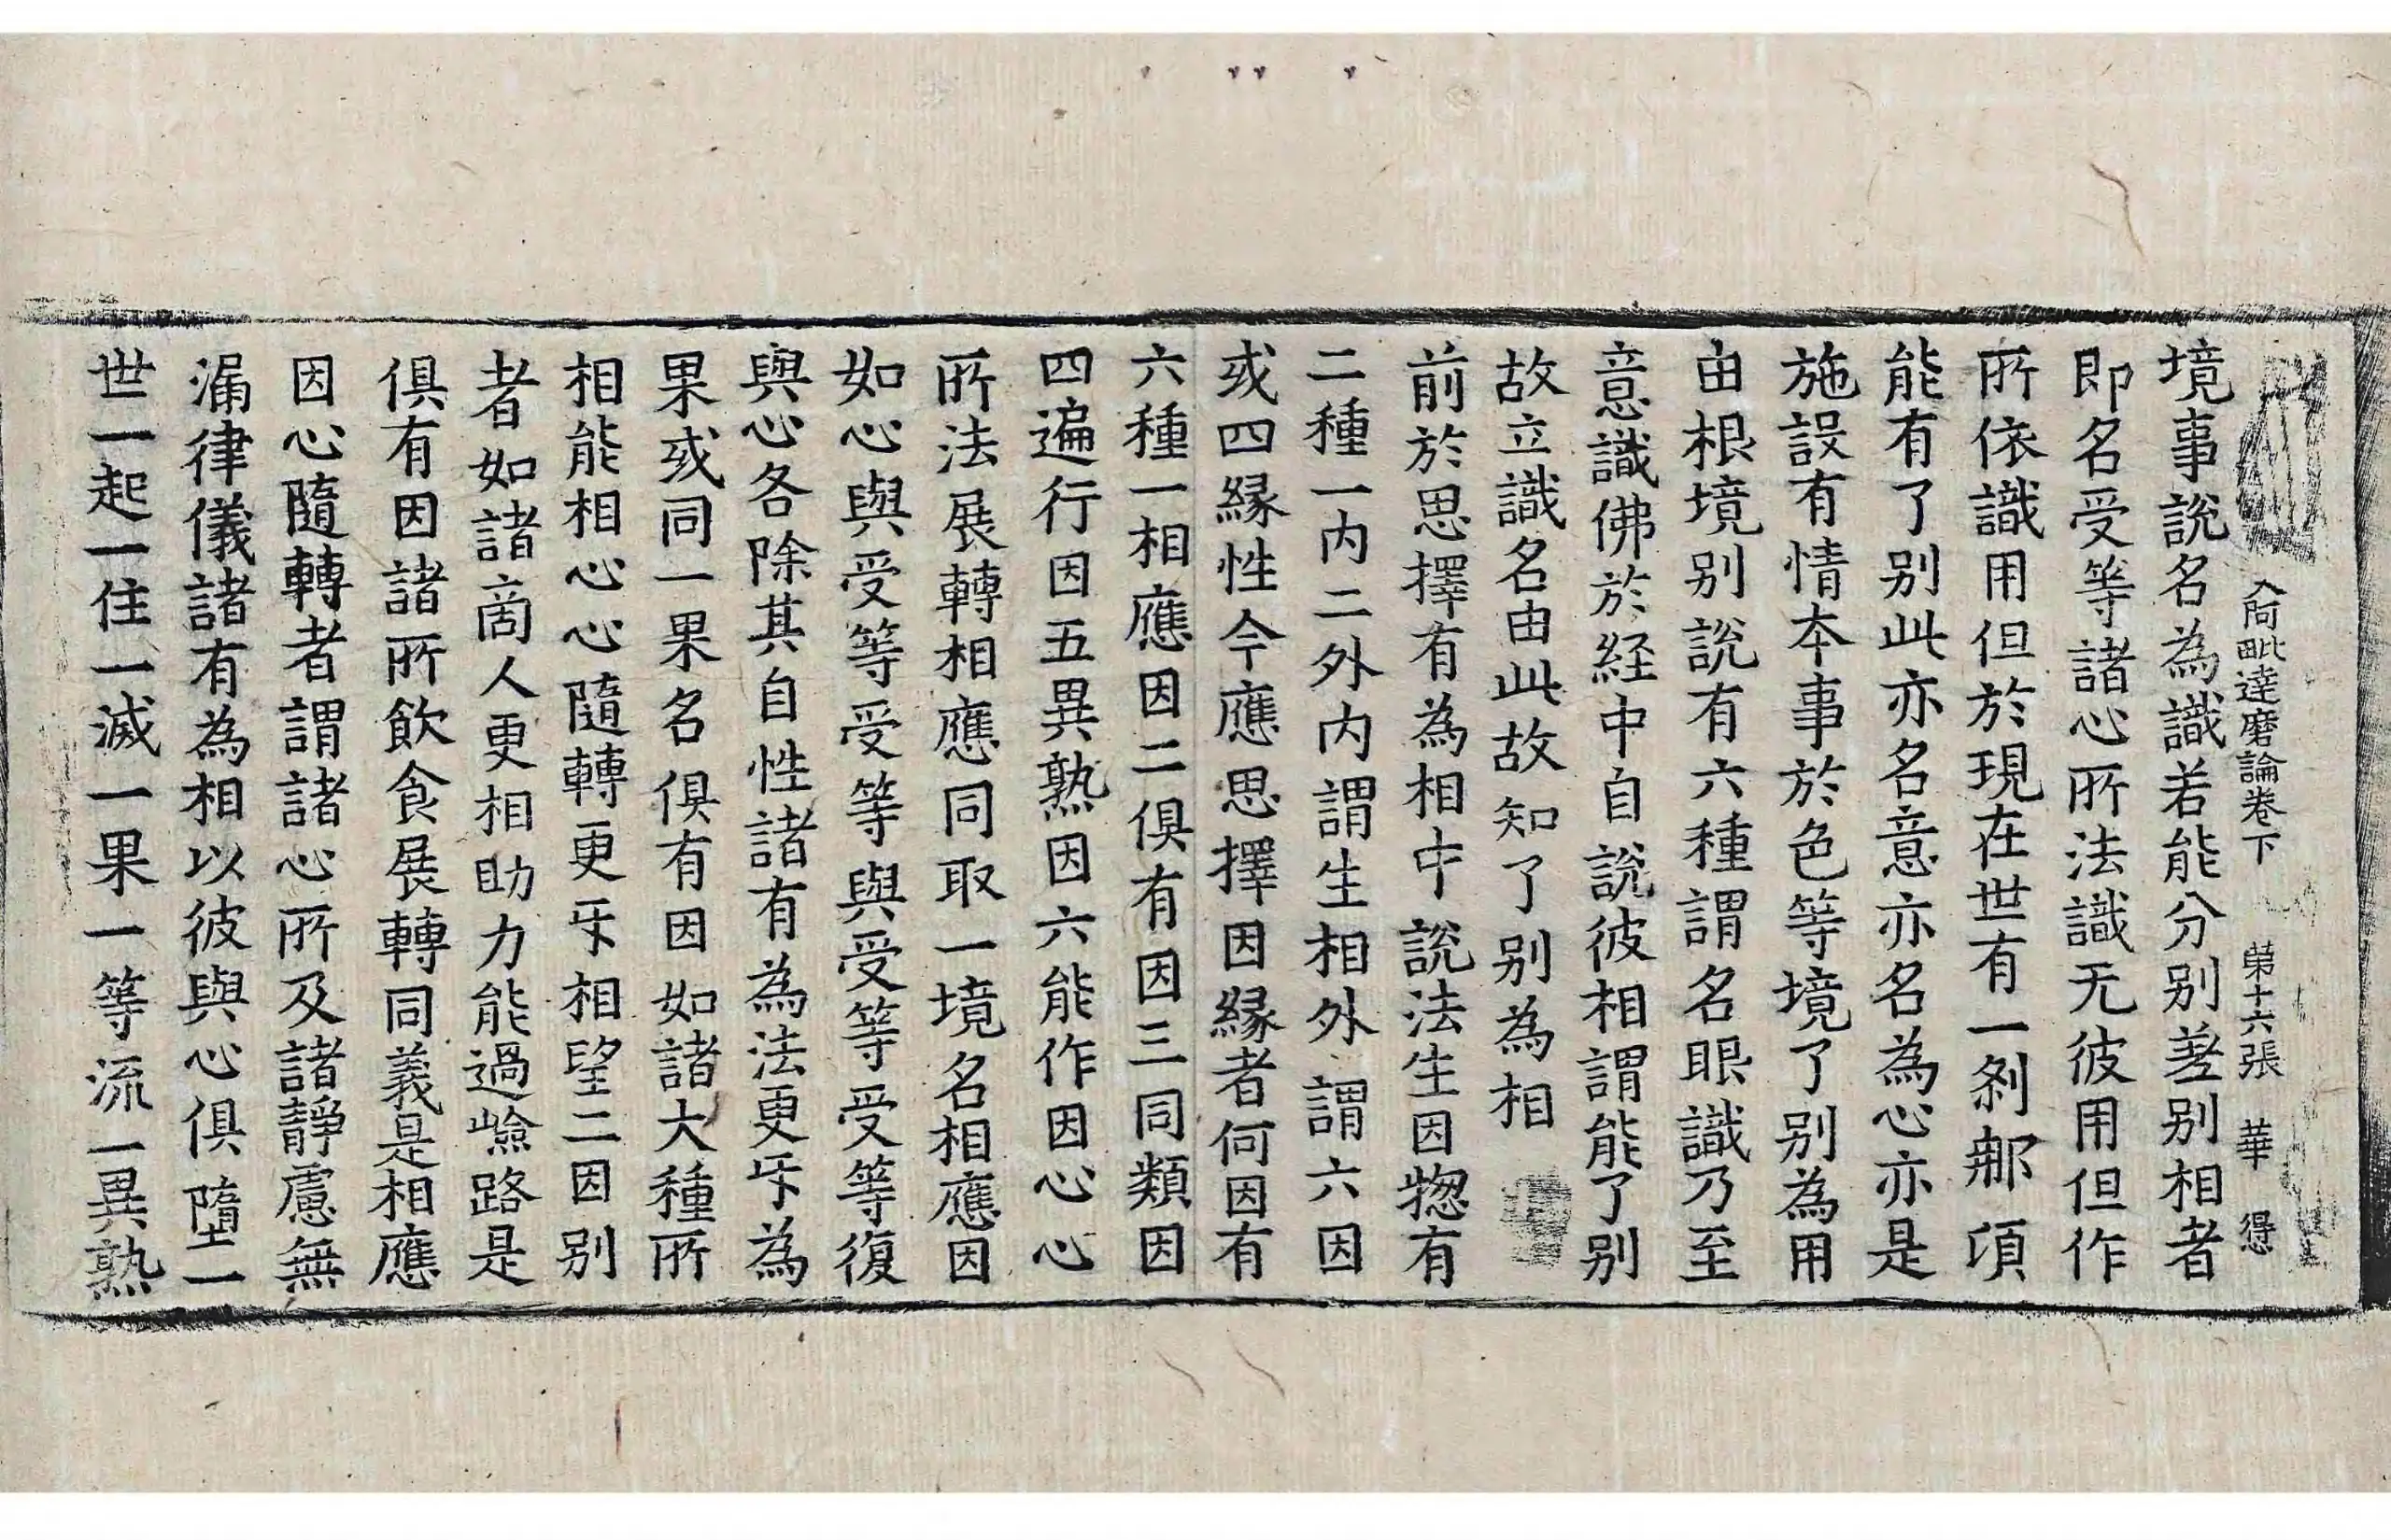 入阿毗達磨論卷下 第十六張 華 得
境事說名為識若能分別差別相者
即名受等諸心所法識无彼用但作
所依識用但於現在世有一剎那頃
能有了別此亦名意亦名為心亦是
施設有情本事於色等境了別為用
由根境別說有六種謂名眼識乃至
意識佛於経中自說彼相謂能了別
故立識名由此故知了別為相
前於思擇有為相中說法生因揔有
二種一内二外内謂生相外謂六因
或四緣性今應思擇因緣者何因有
六種一相應因二俱有因三同類因
四遍行因五異熟因六能作因心心
所法展轉相應同取一境名相應因
如心與受等受等與受等受等復
與心各除其自性諸有為法更㸦為
果或同一果名俱有因如諸大種所
相能相心心隨轉更㸦相望二因別
者如諸啇人更相助力能過嶮路是
俱有因諸所飲食展轉同義是相應
因心隨轉者謂諸心所及諸靜慮無
漏律儀諸有為相以彼與心俱墮一
世一起一住一滅一果一等流一異熟